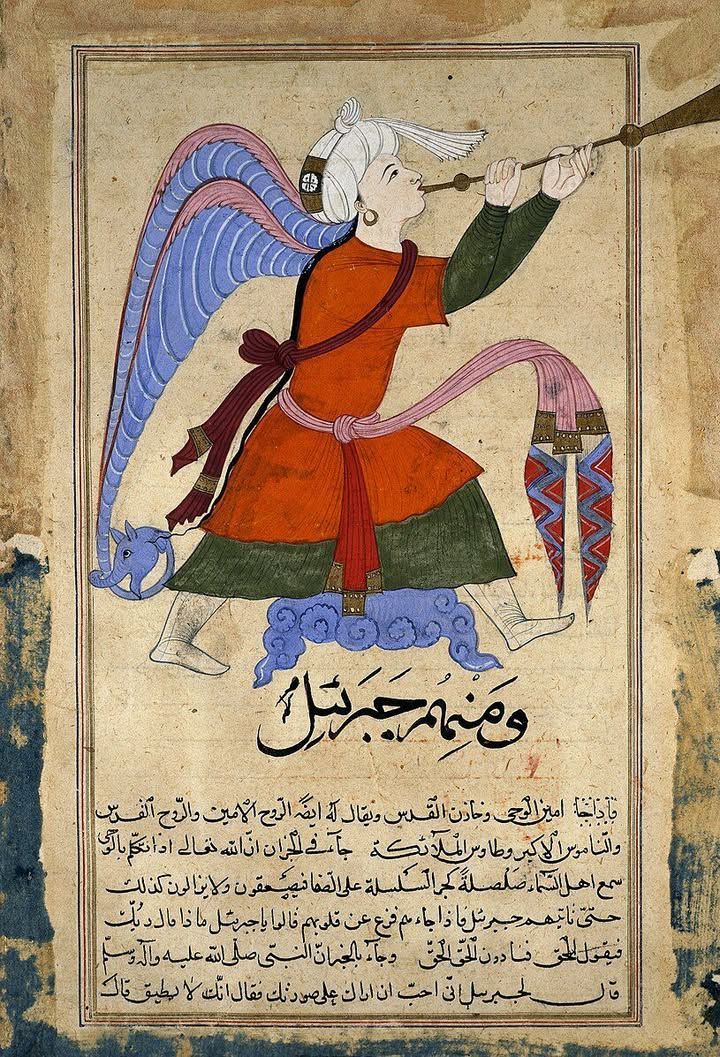 وَمِنهُم جَبرَئيل
امين الوحى وخازن القدس ويقال له ايضًا الروح الامين والرّوح القدس
والنّاموس الاكبر وطاوس الملآئكة جآء فى الخبر ان الله تعالى اذا تكلم بالوحى
سمع اهل السّمآء صلصلةً كجر السلسلة على الصفا فيصعقون ولا يزالون كذلك
حتىّ ياتيهم جبرئيل فاذا جاءهم فزع عن قلوبهم قالوا يا جبرئيل ماذا قال ربّك
فيقول الحق فينادون الحق الحق وجآء بالخبر انّ النبىّ صلى الله عليه وآله وسلم
قال لجبرئيل انّى احبّ ان اراك على صورتك فقال انّك لا تطيق قال